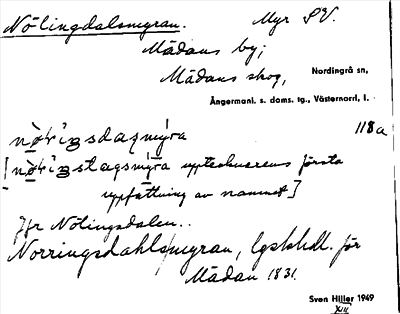 Nölingdalsmyran. Myr SV.
Mädans by;
Mädans skog, Nordingrå sn,
Ångermanl. s. doms. tg., Västernorrl. l.
118a
[ upptecknarens första
uppfattning av namnet]
Jfr Nölingsdalen..
Norringsdahlsmyran, lgskhdl. för
Mädan 1831.
Sven Hiller 1949
XII